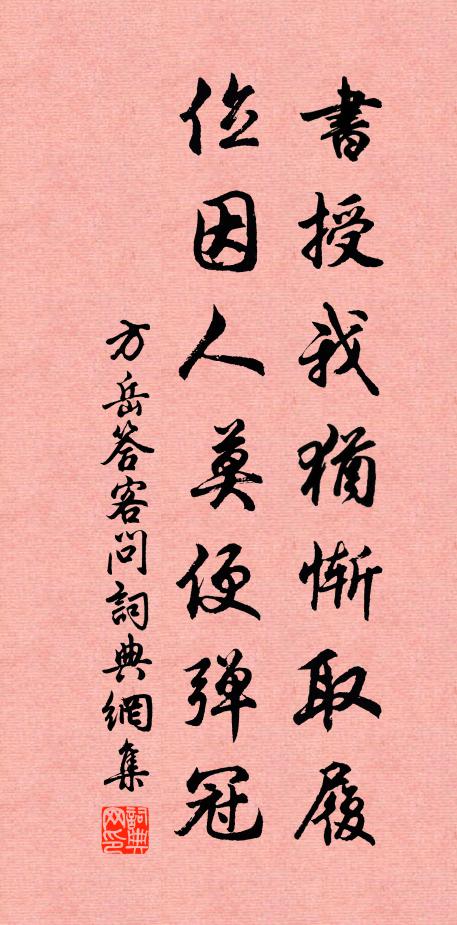 書授我猶慚取履
位因人莫便弹冠
方岳答客問詞典網集
詞典
网印